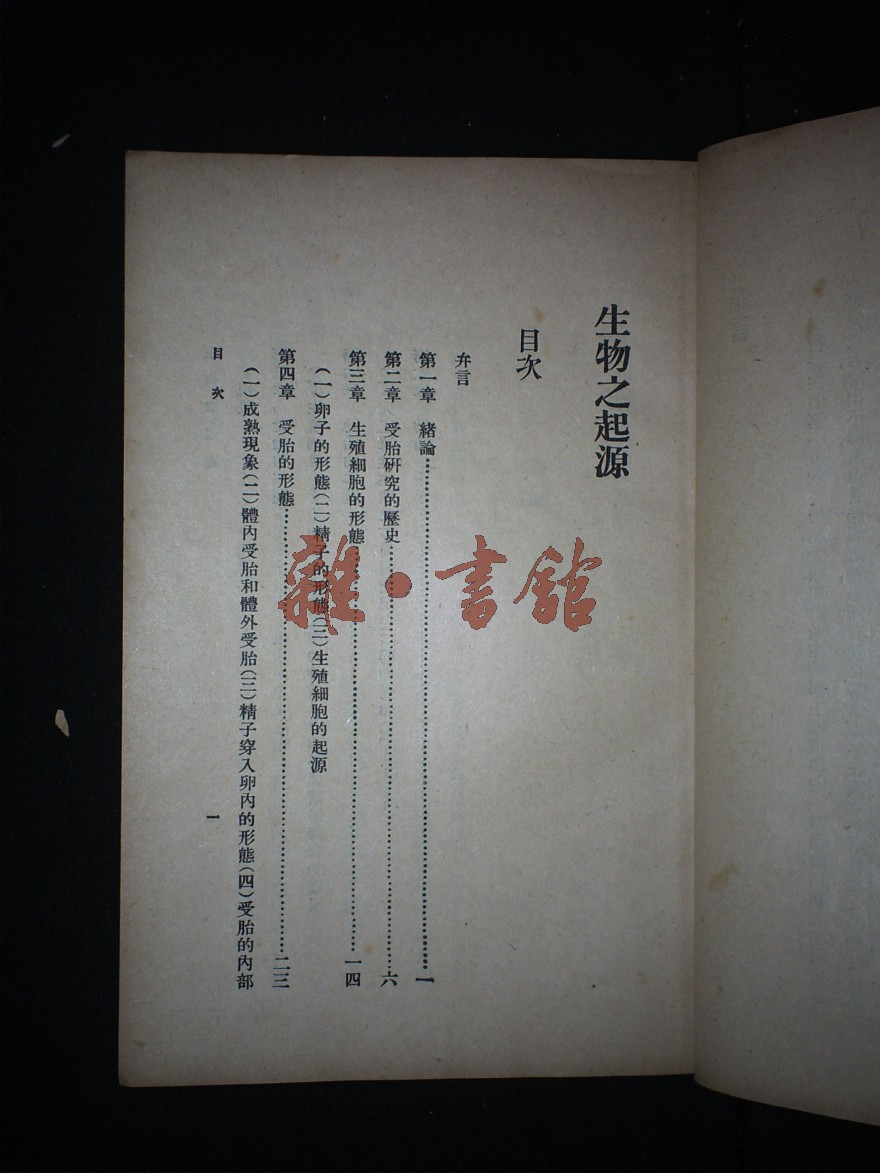 生物之起源
目次
弁言
第一章　緒論…………一
第二章　受胎研究的歷史…………六
第三章　生殖細胞的形態…………一四
（一）卵子的形態（二）精子的形態（三）生殖細胞的起源
第四章　受胎的形態…………二三
（一）成熟現象（二）體內受胎和體外受胎（三）精子穿入卵內的形態（四）受胎的內部
目次　一
雜·書館